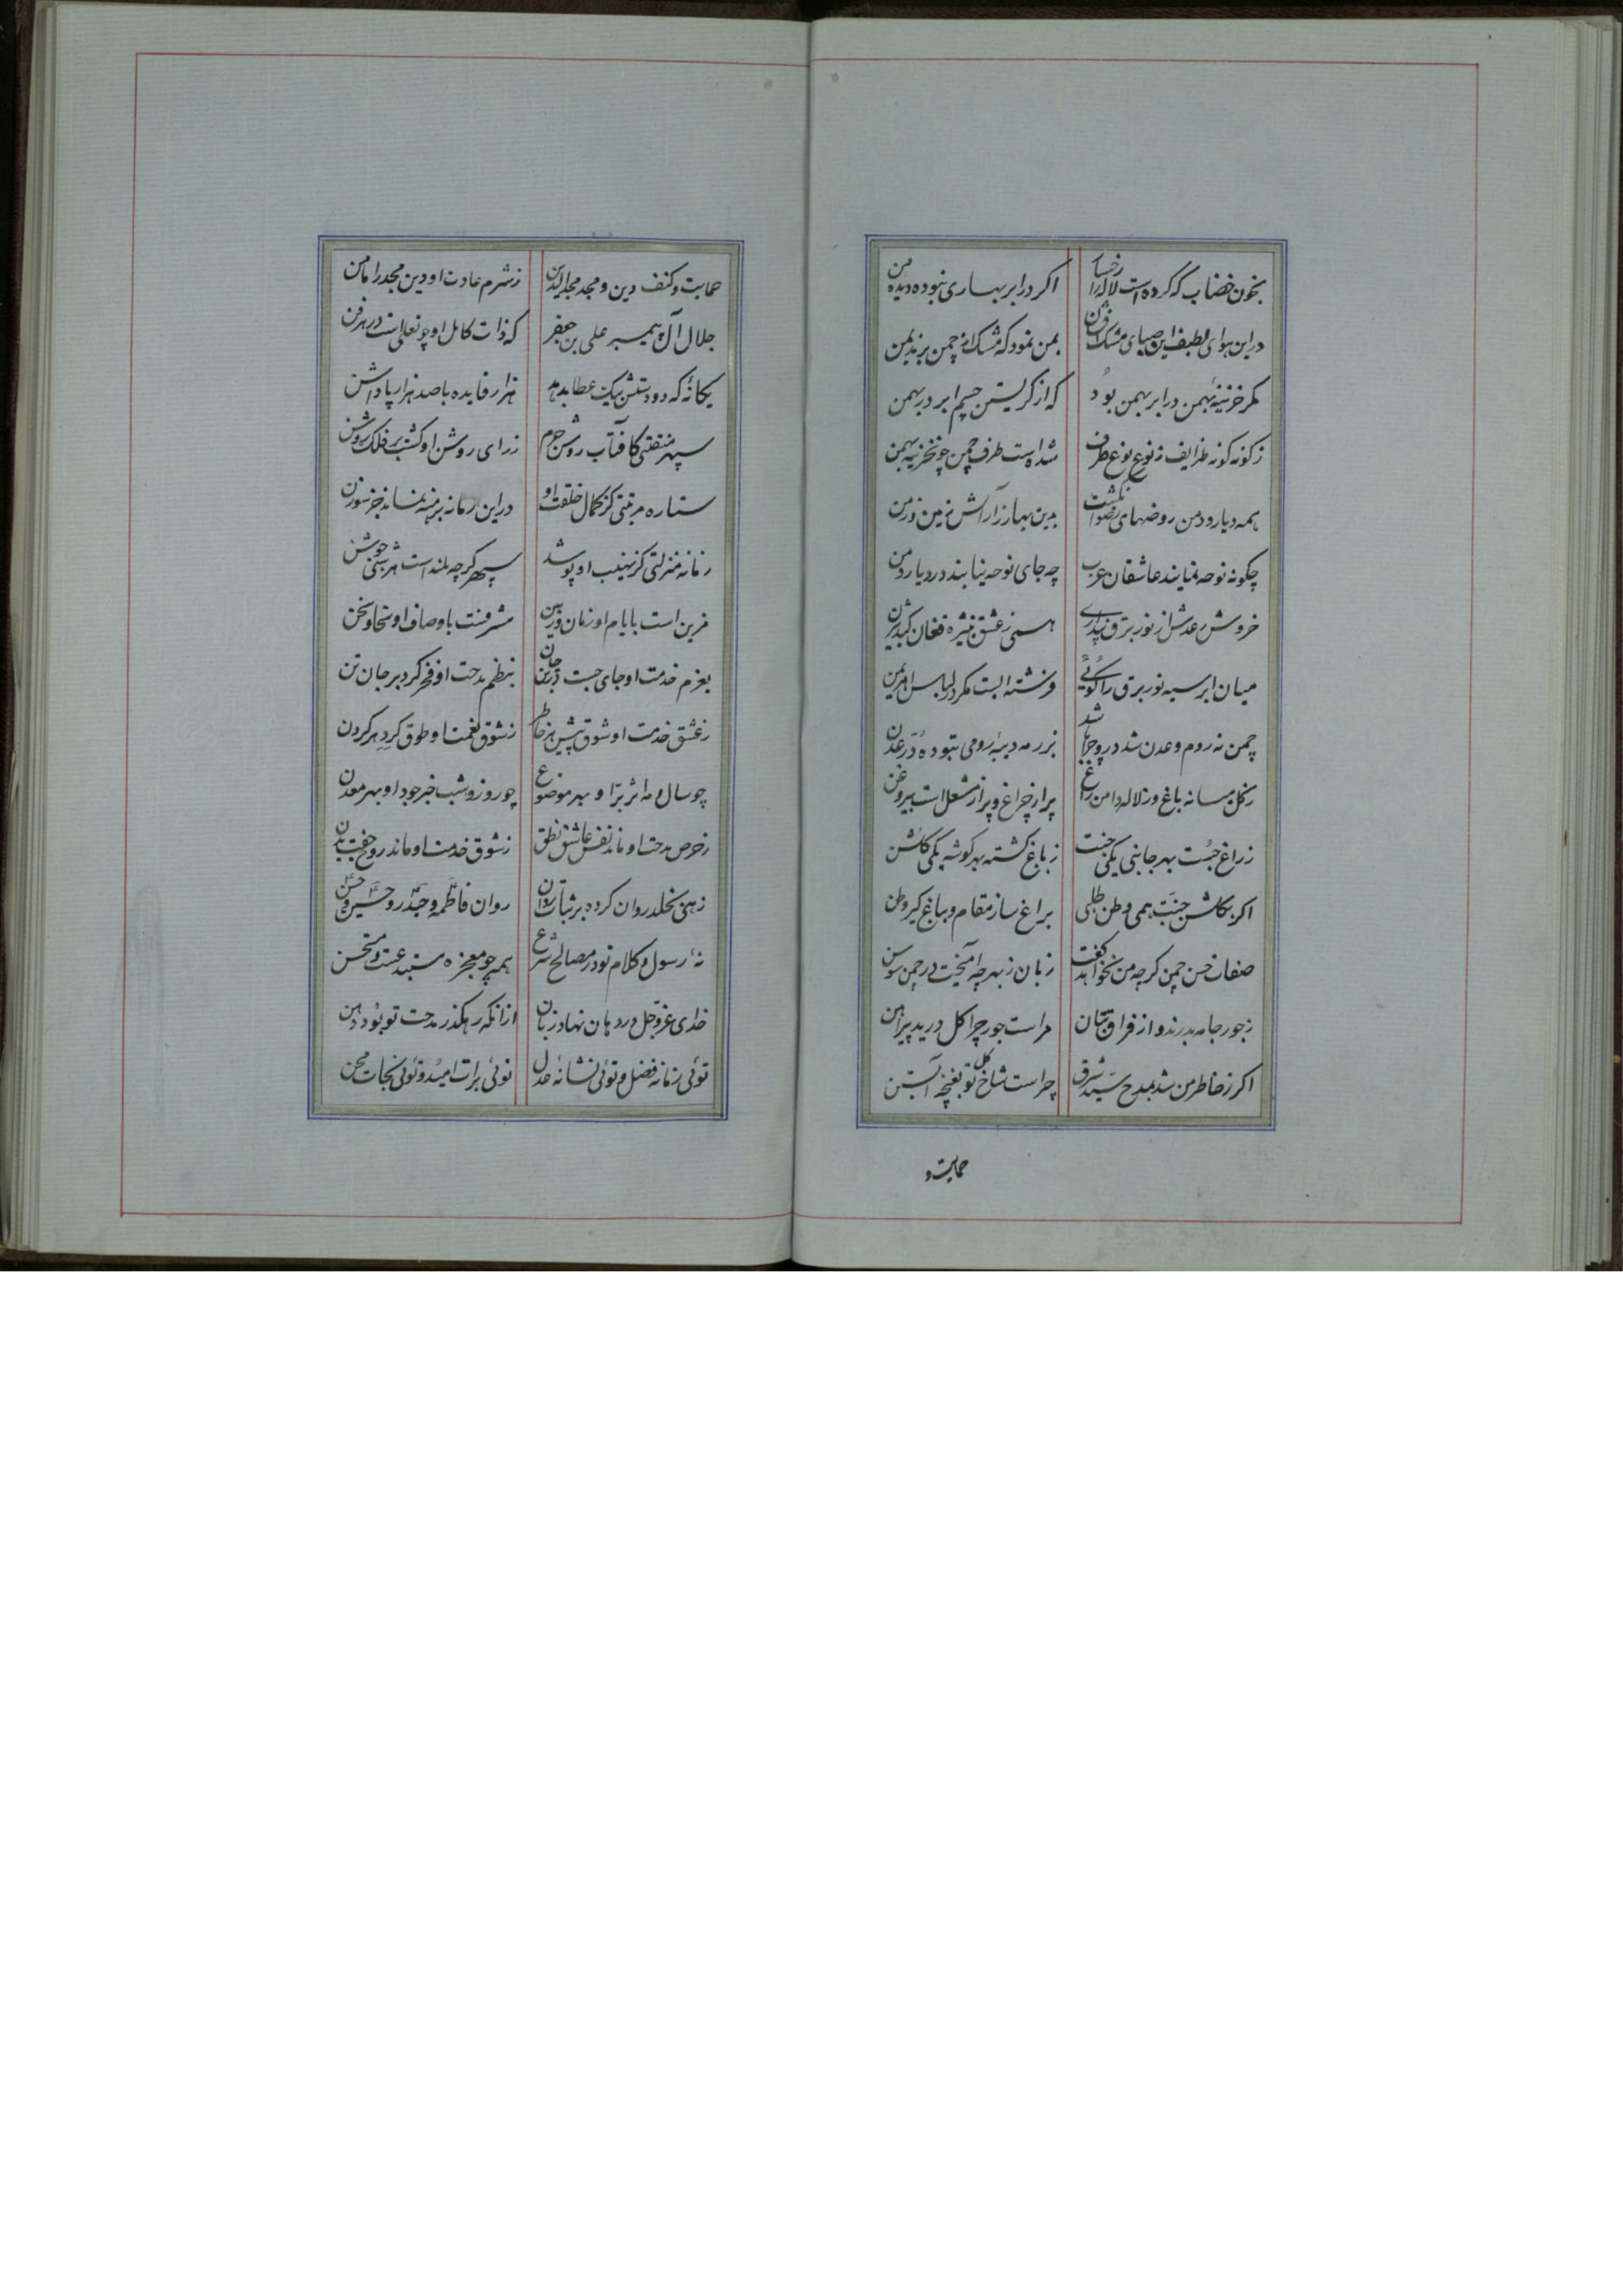 بخون خضاب که کرده است لاله را رخسار اگر در ابر بهاری نبوده دیده من
در این هوای لطیف این صبای مشک فشان بمن نمود که مشک از چمن برند بمن
مگر خزینه بهمن در ابر بهمن بود که از گریستن چشم ابر در بهمن
ز گونه گونه طرایف ز نوع نوع طرف شده است طرف چمن چو خزینه بهمن
همه دیار و دمن روضهای رضوان گشت بدین بهار ز آرایش زمین و زمن
چگونه نوحه نمایند عاشقان عرب چه جای نوحه نیابند در دیار و دمن
خروش رعدش از نور برق پنداری همی ز عشق فغان کند
میان ابر سیه نور برق را گوئی فرشته ایست مگر در لباس اهریمن
چمن نه روم و عدن شد در و چرا باشد بزر مه دیبه رومی بتوده در عدن
ز گل میانه باغ و ز لاله دامن راغ پر از چراغ و پر از مشعل است بی روغن
ز راغ جست بهر جانبی یکی جنت ز باغ گشته بهر گوشه یکی گلشن
اگر بگلشن جنت همی وطن طلبی براغ ساز مقام و بباغ گیر وطن
صفات حسن چمن گرچه من نخواهد گفت زبان ز بهر چه آمیخت در چمن سوسن
ز جور جامه بدرند و از فراق بتان مراست جور چرا گل درید پیراهن
اگر ز خاطر من شد بمدح سید شرق چراست شاخ گل تو بغنچه آبستن
حمایت و
حمایت و کنف دین و مجد مجدالدین ز شرم عادت او دین مجد را مامن
جلال آل پیمبر علی بن جعفر که ذات کامل او چو نعلی است در هر فن
یگانه که دو دستش بیک عطا بدهد هزار فایده با صد هزار پاداشن
سپهر منقبتی کافتاب روشن جرم ز رای روشن او گشت بر فلک روشن
ستاره مرتبتی کز کمال خلقت او در این زمانه برهنه نماند جز سوزن
زمانه منزلتی کز نهیب او پوشد سپهر گرچه بلند است هر شبی جوشن
مزین است بایام او زمان و زمین مشرفست باوصاف او سخا و سخن
بعزم خدمت او جای جست در تن جان بنظم مدحت او فخر کرد بر جان تن
ز عشق خدمت او شوق پیش هر خاطر ز شوق نعمت او طوق گرد هر گردن
چو سال و مه اثر بر او بهر موضوع چو روز و شب خبر جود او بهر معدن
ز حرص مدحت او ماند نفس عاشق نطق ز شوق خدمت او ماند روح جفت بدن
زهی بخلد روان کرده بر ثبات روان روان فاطمه و حیدر و حسین و حسن
نه رسول و کلام تو در مصالح شرع همه چو معجزه مستبدعست و مستحسن
خدای عز و جل در دهان نهاد زبان از آنکه رهگذر مدحت تو بود دهن
توئی زمانه فضل و توئی نشانه عدل توئی برات امید و توئی نجات محن